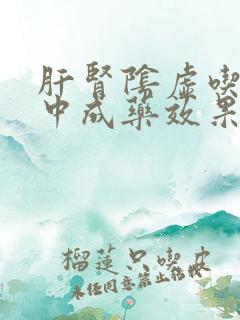 肝腎陰虛喫
中成藥效果
榴蓮只喫皮
未經同意禁止轉載